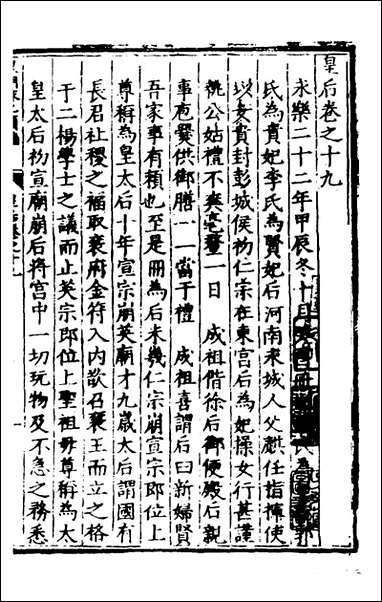 皇后卷之十九
永樂二十二年甲辰冬十月
氏為貴妃李氏為賢妃后河南永城人父麒任指揮使
以女貴封彭城侯初仁宗在東宮后為妃操女行甚謹
執公姑禮不爽毫釐一日　成祖偕徐后御便殿后親
事庖爨供御膳一一當于禮　成祖喜謂后曰新婦賢
吾家事有賴也至是冊為后未幾仁宗崩宣宗即位上
尊稱為皇太后十年宣宗崩英廟才九歲太后謂國有
長君社稷之福取襄府金符入內欲召襄王而立之格
于二楊學士之議而止英宗即位上聖祖母尊稱為太
皇太后初宣廟崩后將宮中一切玩物及不急之務悉